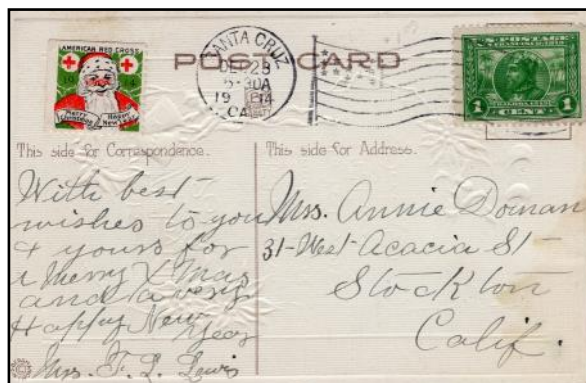 AMERICAN RED CROSS
19 14
Merry Christmas
Happy New Year
POST CARD
SANTA CRUZ
DEC 23
5-30A
19 14
CAL.
U.S. POSTAGE
SAN FRANCISCO 1915
1 CENT 1
This side for Correspondence.
This side for Address.
With best
wishes to you
& yours for
a Merry X mas
and a very
Happy New
Year
Mrs. F. L. Lewis
Mrs. Annie Doman
31-West-Acacia St-
Stockton
Calif.